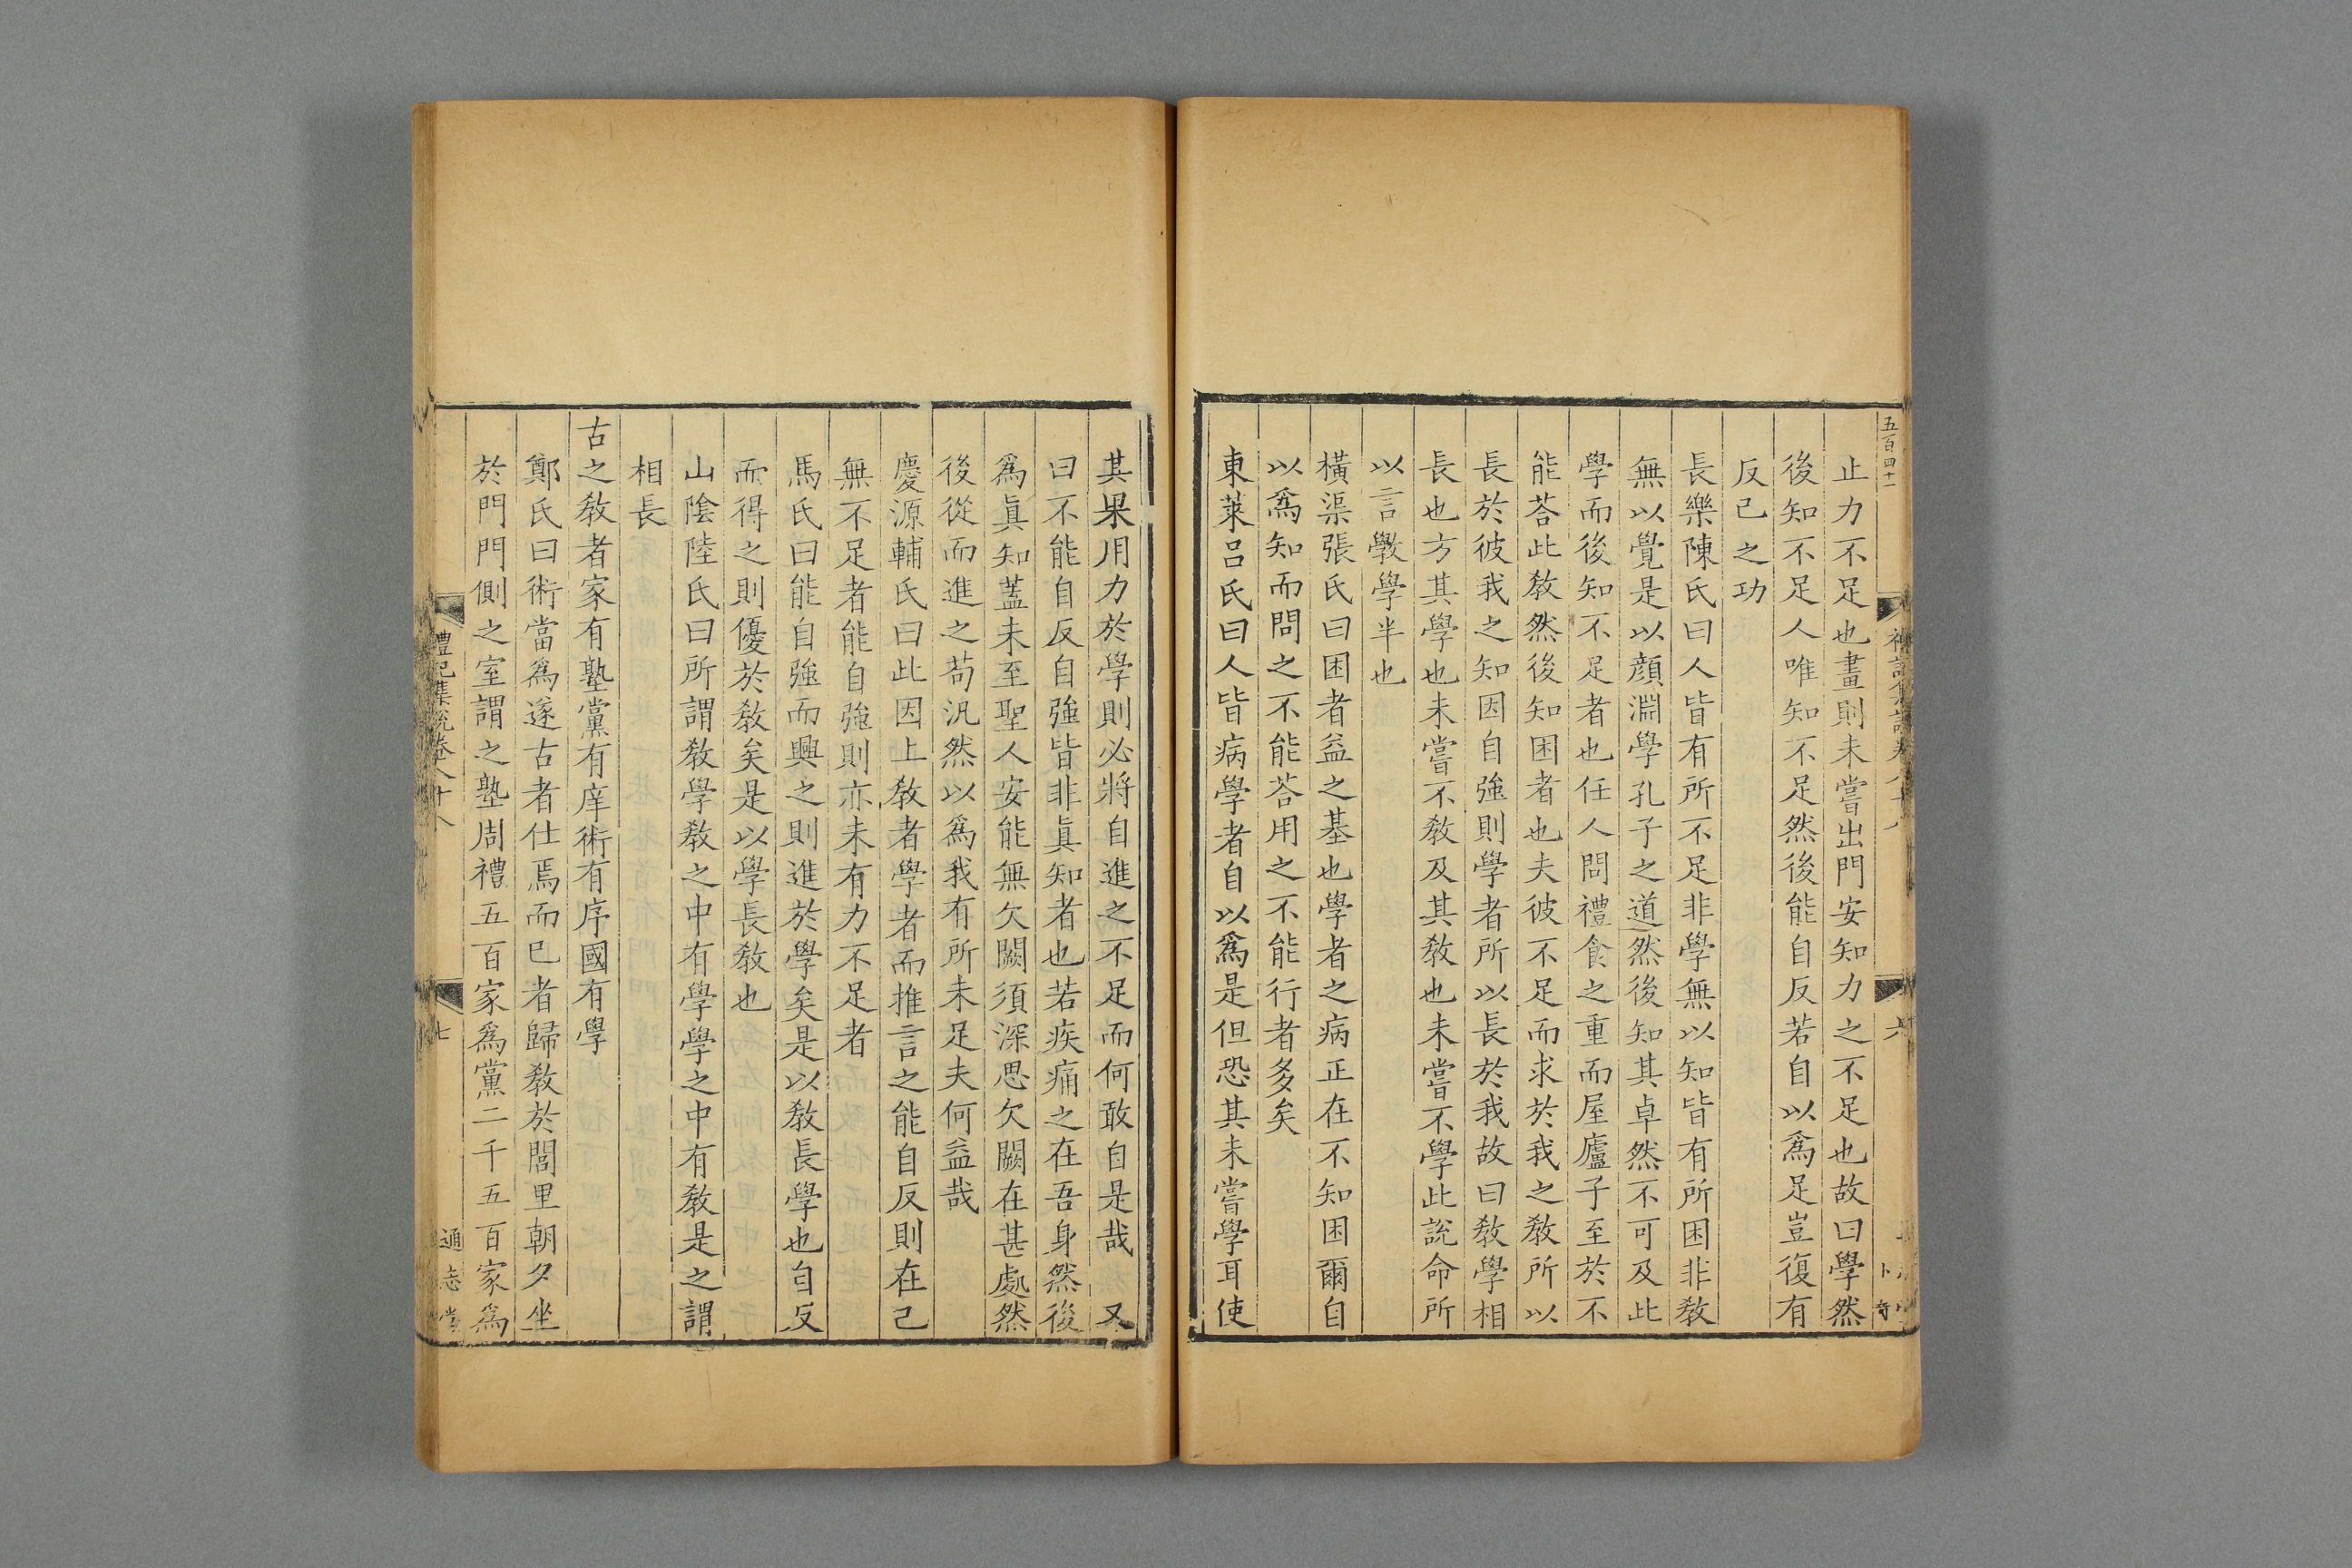 五百四十一
止力不足也畫則未嘗出門安知力之不足也故曰學然
後知不足人唯知不足然後能自反若自以爲足豈復有
反己之功
長樂陳氏曰人皆有所不足非學無以知皆有所困非敎
無以覺是以顔淵學孔子之道然後知其卓然不可及此
學而後知不足者也任人問禮食之重而屋廬子至於不
能荅此敎然後知困者也夫彼不足而求於我之敎所以
長於彼我之知因自強則學者所以長於我故曰敎學相
長也方其學也未嘗不敎及其敎也未嘗不學此說命所
以言斆學半也
橫渠張氏曰困者益之基也學者之病正在不知困爾自
以爲知而問之不能荅用之不能行者多矣
東萊呂氏曰人皆病學者自以爲是但恐其未嘗學耳使
其果用力於學則必將自進之不足而何敢自是哉 又
曰不能自反自強皆非眞知者也若疾痛之在吾身然後
爲眞知蓋未至聖人安能無欠闕須深思欠闕在甚處然
後從而進之苟汎然以爲我有所未足夫何益哉
慶源輔氏曰此因上敎者學者而推言之能自反則在己
無不足者能自強則亦未有力不足者
馬氏曰能自強而興之則進於學矣是以敎長學也自反
而得之則優於敎矣是以學長敎也
山陰陸氏曰所謂敎學敎之中有學學之中有敎是之謂
相長
古之敎者家有塾黨有庠術有序國有學
鄭氏曰術當爲遂古者仕焉而已者歸敎於閭里朝夕坐
於門門側之室謂之塾周禮五百家爲黨二千五百家爲
禮記集說卷八十八
七
通志堂